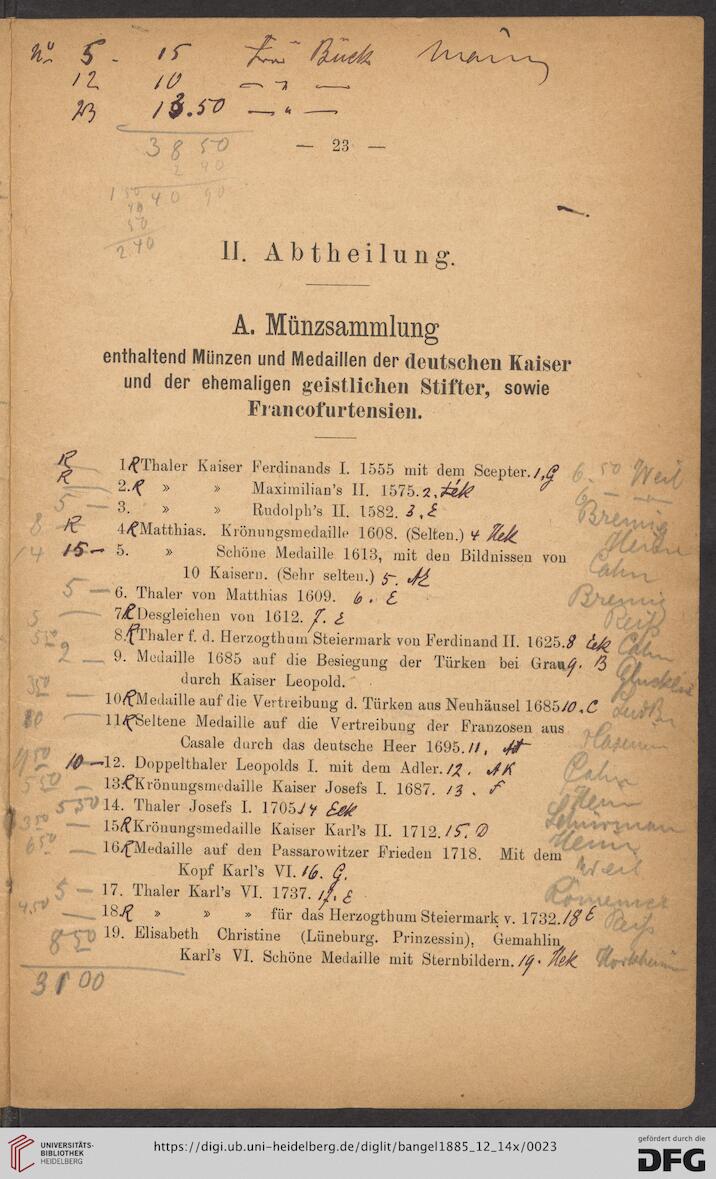 No 5 - 15 Frau Bück
12 10 — " —
23 13.50 — " —
38 50
2 40
40 90
50
40
50
2.40
— 23 —
II. Abtheilung.
A. Münzsammlung
enthaltend Münzen und Medaillen der deutschen Kaiser
und der ehemaligen geistlichen Stifter, sowie
Francofurtensien.
R 1. R Thaler Kaiser Ferdinands I. 1555 mit dem Scepter. 1, G 6.50 Weil
R 2. R » » Maximilian's II. 1575. 2. 6 — " —
5 — 3. » » Rudolph's II. 1582. 3. E Breunig
8 R 4. R Matthias. Krönungsmedaille 1608. (Selten.) 4 Hek
14 15 — 5. » Schöne Medaille 1613, mit den Bildnissen von
10 Kaisern. (Sehr selten.) 5. Cahn
5 — 6. Thaler von Matthias 1609. 6. E Breunig
5 7. R Desgleichen von 1612. 7. E Reiß
5 50 8. R Thaler f. d. Herzogthum Steiermark von Ferdinand II. 1625. 8 Eck Cahn
2 — 9. Medaille 1685 auf die Besiegung der Türken bei Gran 9. B
durch Kaiser Leopold.
3 50 — 10 R Medaille auf die Vertreibung d. Türken aus Neuhäusel 1685 10. C
10 — 11 R Seltene Medaille auf die Vertreibung der Franzosen aus
Casale durch das deutsche Heer 1695. 11,
11 50 10 — 12. Doppelthaler Leopolds I. mit dem Adler. 12. AK Cahn
5 50 — 13. R Krönungsmedaille Kaiser Josefs I. 1687. 13. F
5 50 14. Thaler Josefs I. 1705 14 Eck
3 50 — 15 R Krönungsmedaille Kaiser Karl's II. 1712. 15. D
6 50 — 16 R Medaille auf den Passarowitzer Frieden 1718. Mit dem
Kopf Karl's VI. 16. G. Weil
5 — 17. Thaler Karl's VI. 1737. 17. E
4.50 — 18 R » » » für das Herzogthum Steiermark v. 1732. 18 E Reiß
8 50 19. Elisabeth Christine (Lüneburg. Prinzessin), Gemahlin
Karl's VI. Schöne Medaille mit Sternbildern. 19. Hek
31 00
UNIVERSITÄTS-
BIBLIOTHEK
HEIDELBERG
https://digi.ub.uni-heidelberg.de/diglit/bangel1885_12_14x/0023
gefördert durch die
DFG